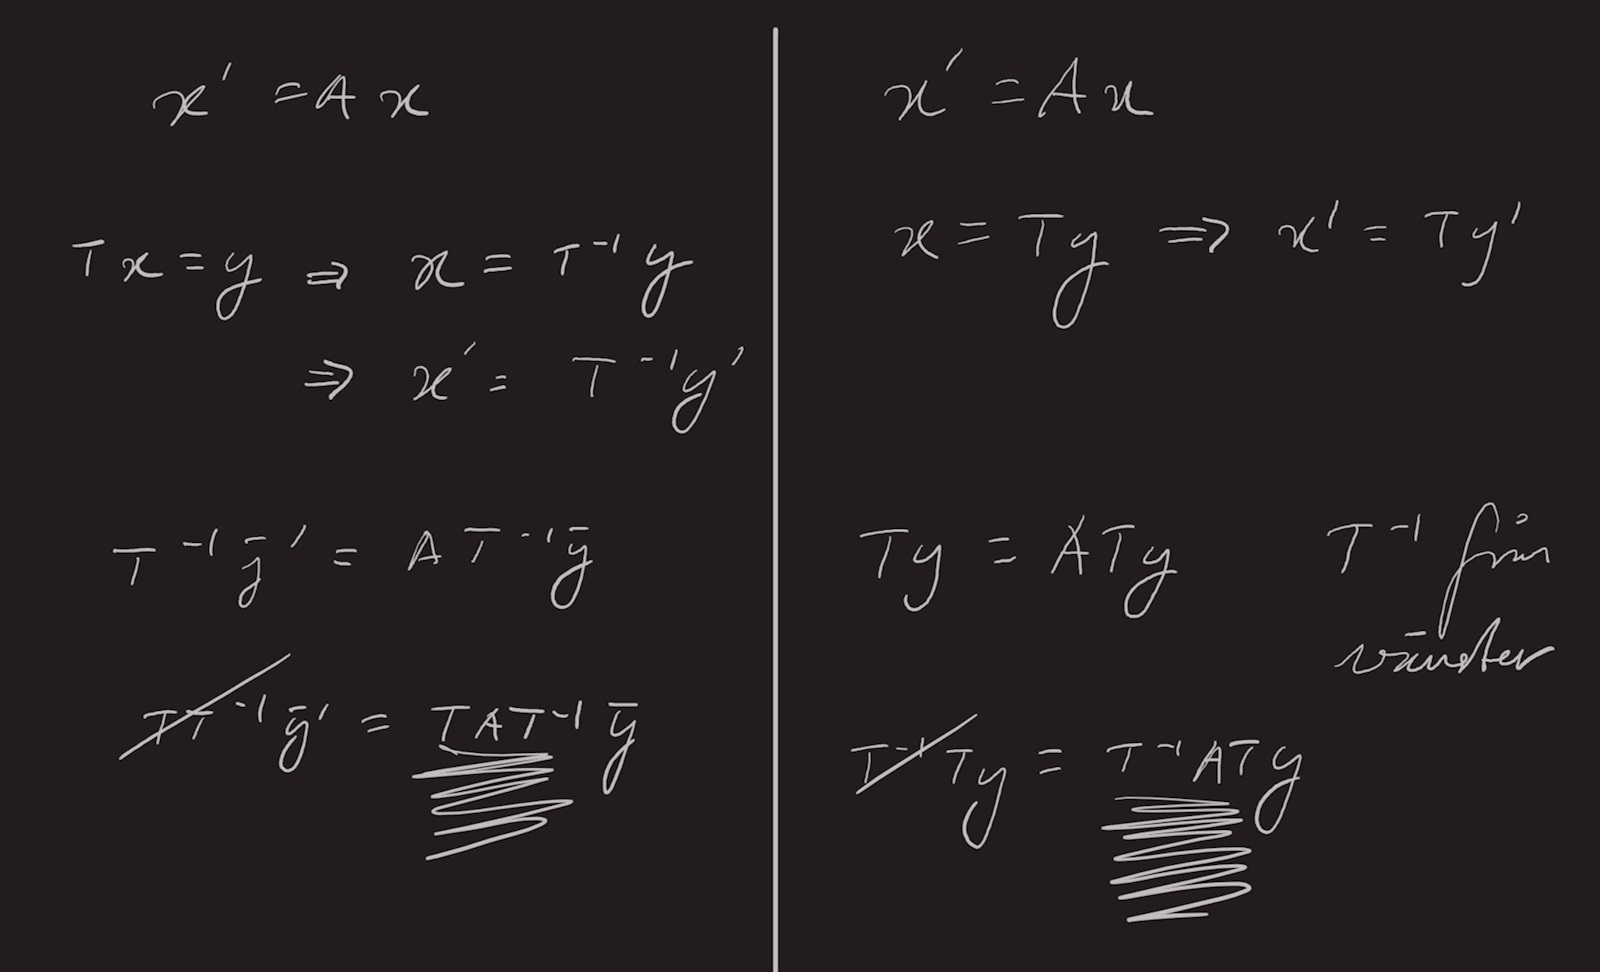 x' = A x
Tx = y ⇒ x = T⁻¹ y
⇒ x' = T⁻¹ y'
T⁻¹ ȳ' = A T⁻¹ ȳ
TT⁻¹ ȳ' = TAT⁻¹ ȳ
x' = Ax
x = Ty ⇒ x' = Ty'
Ty = ATy T⁻¹ från
vänster
T⁻¹Ty = T⁻¹ATy